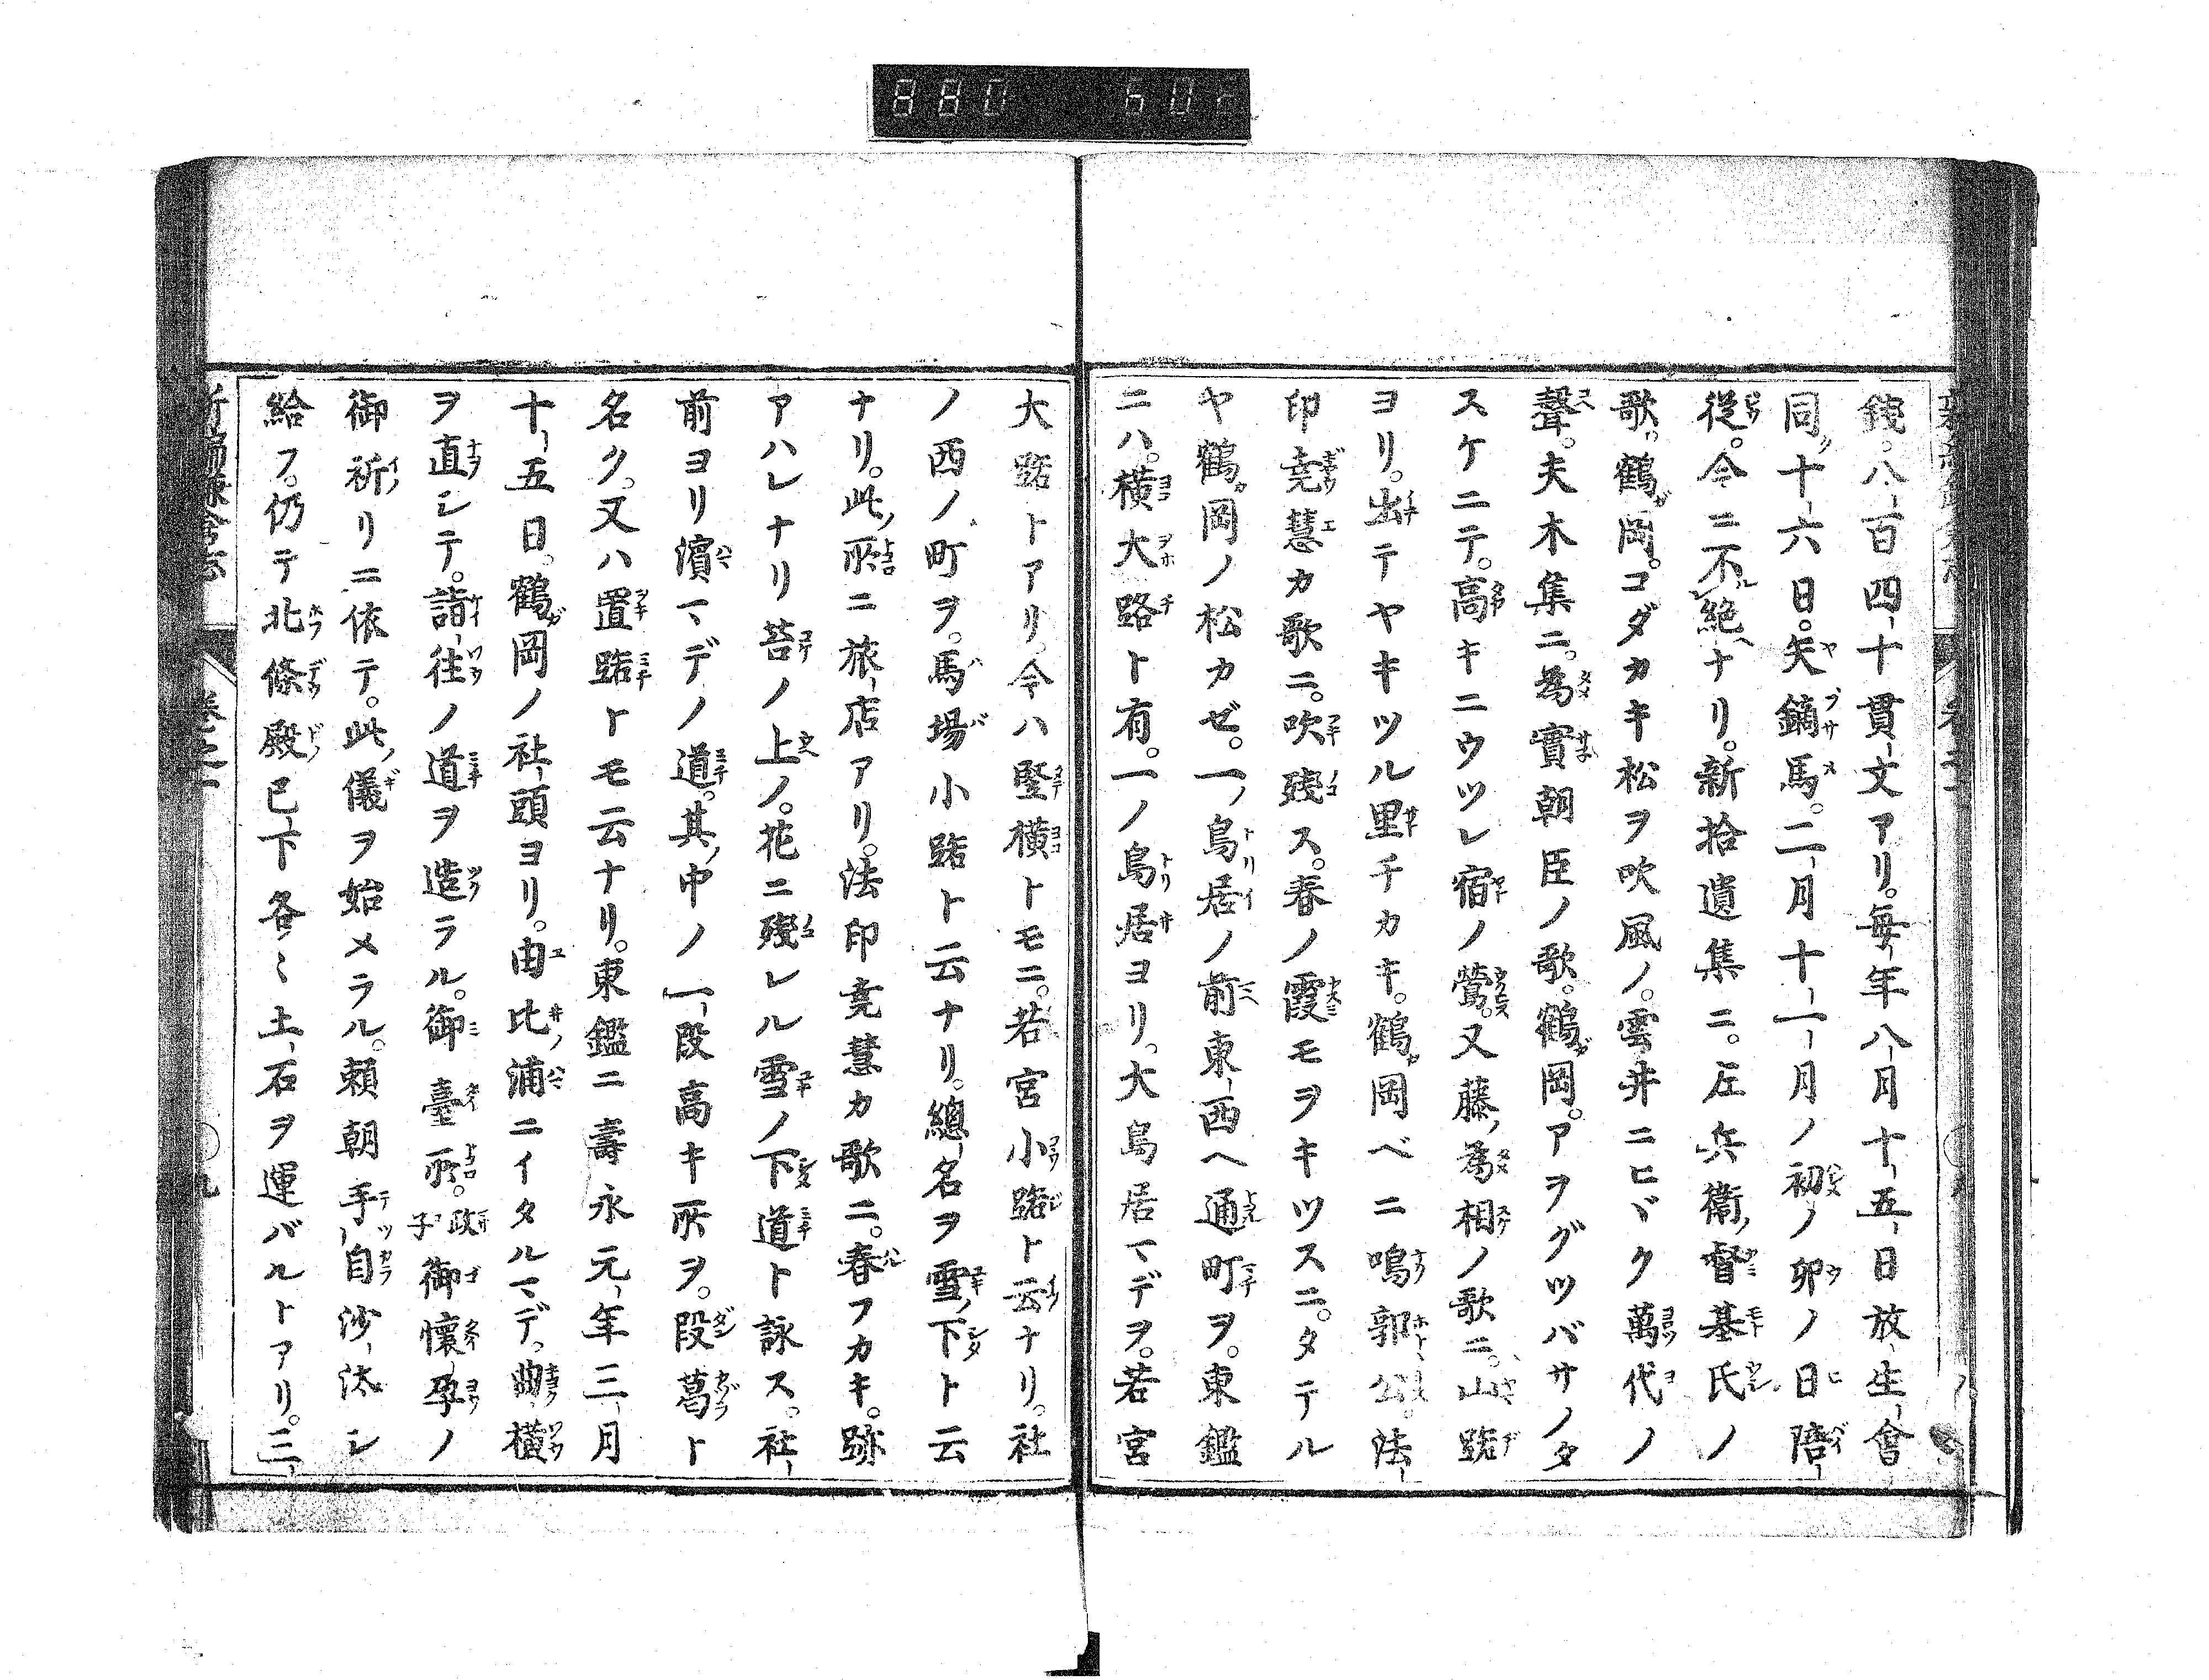 錢。八百四十貫文アリ。毎年八月十五日放生會
同十六日。矢鏑馬。二月十一月ノ初ノ卯ノ日陪
從。今ニ不絶ナリ。新拾遺集ニ。左兵衞督基氏ノ
歌。鶴岡。コダカキ松ヲ吹風ノ。雲井ニヒヾク萬代ノ
聲。夫木集ニ。為實朝臣ノ歌。鶴岡。アヲグツバサノタ
スケニテ。高キニウツレ宿ノ鶯。又藤為相ノ歌ニ。山路
ヨリ。出テヤキツル里チカキ。鶴岡ベニ鳴郭公。法
印尭慧カ歌ニ。吹殘ス。春ノ霞モヲキツスニ。タテル
ヤ鶴岡ノ松カゼ。一鳥居ノ前東西ヘ通町ヲ。東鑑
ニハ。横大路ト有。一ノ鳥居ヨリ。大鳥居マデヲ。若宮
大路トアリ。今ハ竪横トモニ。若宮小路ト云ナリ。社
ノ西ノ町ヲ。馬場小路ト云ナリ。總名ヲ雪下ト云
ナリ。此所ニ旅店アリ。法印尭慧カ歌ニ。春フカキ。跡
アハレナリ苔ノ上ノ。花ニ殘レル雪ノ下道ト詠ス。社
前ヨリ濱マデノ道。其中ノ一段高キ所ヲ。段葛ト
名ク。又ハ置路トモ云ナリ。東鑑ニ壽永元年三月
十五日。鶴岡ノ社頭ヨリ。由比浦ニイタルマデ。曲横
ヲ直シテ。詣往ノ道ヲ造ラル。御臺所。政子御懷孕ノ
御祈リニ依テ。此儀ヲ始メラル。頼朝手自沙汰シ
給フ。仍テ北條殿已下各〻土石ヲ運バルトアリ。三
新編鎌倉志 卷之一 九